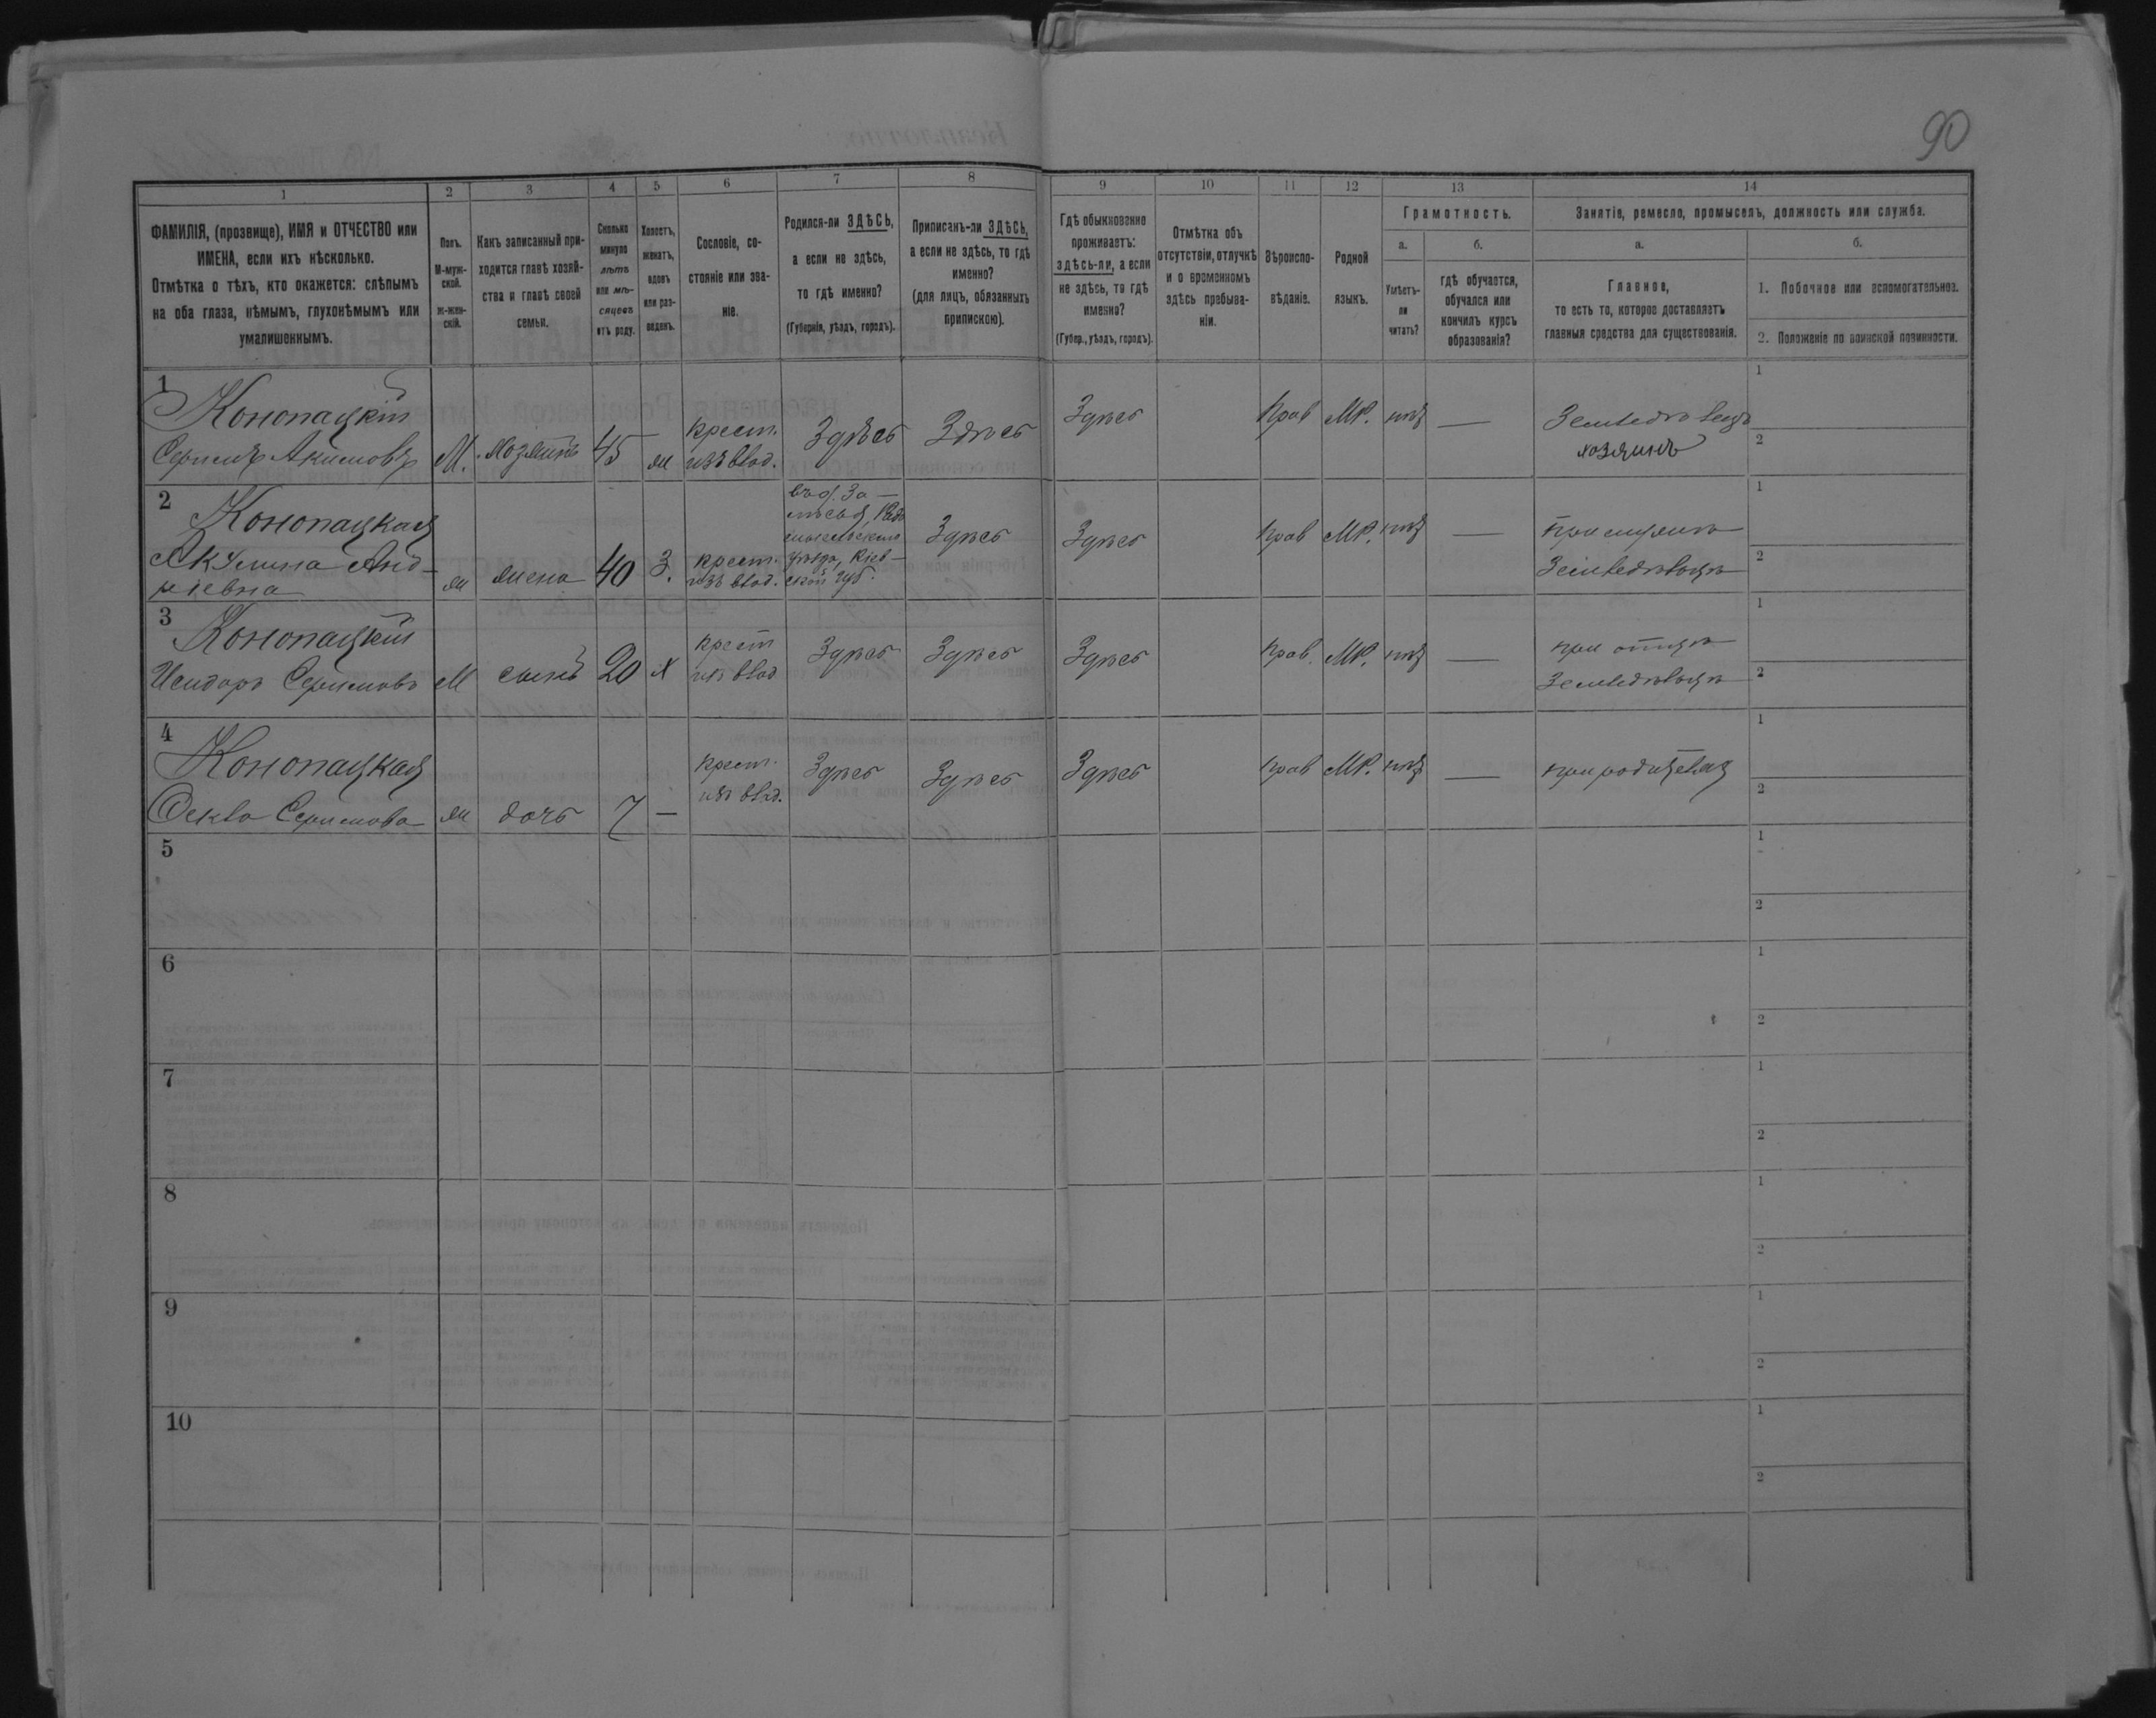 90
1 2 3 4 5 6 7 8 9 10 11 12 13 14
ФАМИЛІЯ, (прозвище), ИМЯ и ОТЧЕСТВО или
ИМЕНА, если ихъ нѣсколько.
Отмѣтка о тѣхъ, кто окажется: слѣпымъ
на оба глаза, нѣмымъ, глухонѣмымъ или
умалишеннымъ.
Полъ.
М-муж-
ской.
ж-жен-
скій.
Какъ записанный при-
ходится главѣ хозяй-
ства и главѣ своей
семьи.
Сколько
минуло
лѣтъ
или мѣ-
сяцевъ
отъ роду.
Холостъ,
женатъ,
вдовъ
или раз-
веденъ.
Сословіе, со-
стояніе или зва-
ніе.
Родился-ли ЗДѢСЬ,
а если не здѣсь,
то гдѣ именно?
(Губернія, уѣздъ, городъ).
Приписанъ-ли ЗДѢСЬ,
а если не здѣсь, то гдѣ
именно?
(для лицъ, обязанныхъ
припискою).
Гдѣ обыкновенно
проживаетъ:
здѣсь-ли, а если
не здѣсь, то гдѣ
именно?
(Губер., уѣздъ, городъ).
Отмѣтка объ
отсутствіи, отлучкѣ
и о временномъ
здѣсь пребыва-
ніи.
Вѣроиспо-
вѣданіе.
Родной
языкъ.
Грамотность.
а.
Умѣетъ-
ли
читать?
б.
гдѣ обучается,
обучался или
кончилъ курсъ
образованія?
Занятіе, ремесло, промыселъ, должность или служба.
а.
Главное,
то есть то, которое доставляетъ
главныя средства для существованія.
б.
1. Побочное или вспомогательное.
2. Положеніе по воинской повинности.
1
Конопацкій
Акимовъ
М. хозяинъ 45 ж
крест.
изъ влад.
Здѣсь Здѣсь Здѣсь Прав МР. нѣт —
Земледѣлецъ
хозяинъ
1
2
2
Конопацкая
Акулина Анд-
ж жена 40 З.
крест.
изъ влад.
уѣзда, Кіев-
ской губ.
Здѣсь Здѣсь Прав МР. нѣт —
Земледѣльцѣ
1
2
3
Конопацкій
Исидоръ
М сынъ 20 х
крест
изъ влад
Здѣсь Здѣсь Здѣсь Прав. МР. нѣт —
при отцѣ
Земледѣльцѣ
1
2
4
Конопацкая
ж дочь 7 —
крест.
изъ влад.
Здѣсь Здѣсь Здѣсь Прав МР. нѣт —
1
2
5
1
2
6
1
2
7
1
2
8
1
2
9
1
2
10
1
2